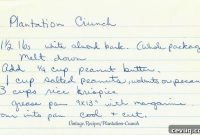 Plantation Crunch
1½ lbs white almond bark.
Melt down
Add 1/4 cup peanut butter.
1 cup salted peanuts,
3 cups rice krispies
grease pan 9x13" with margarine
pan cool + cut.
Vintage.Recipes/Plantation-Crunch
cevug.com